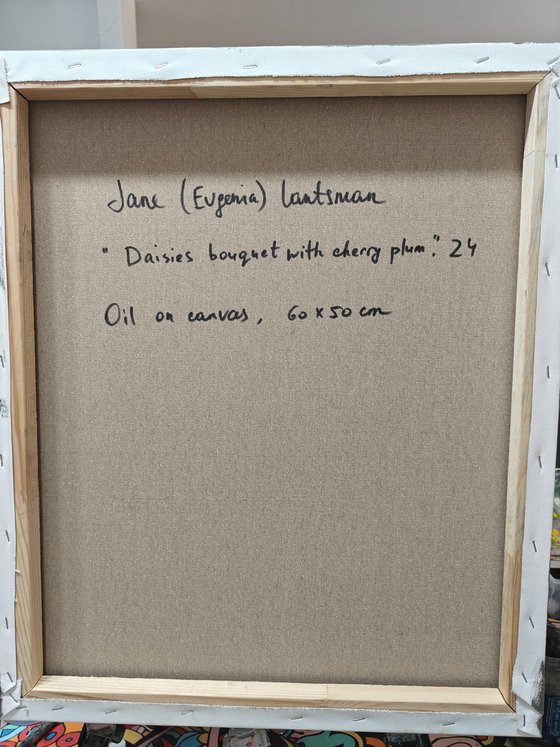 Jane (Evgenia) Lantsman
"Daisies bouquet with cherry plum". 24
Oil on canvas, 60 x 50 cm